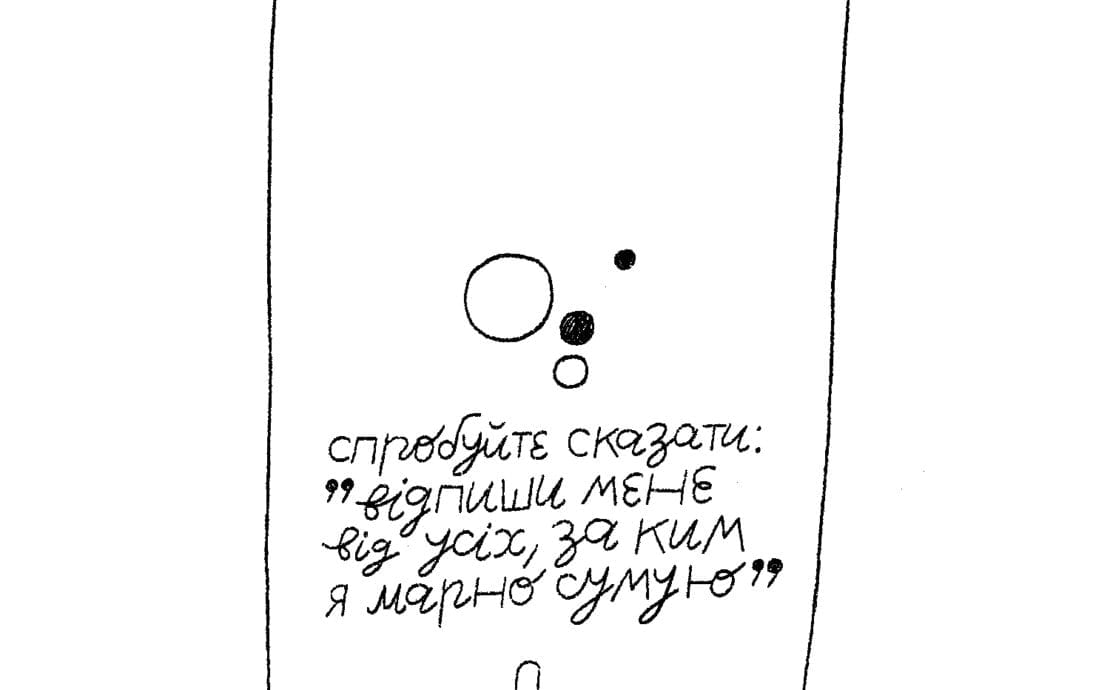 спробуйте сказати:
"відпиши мене
від усіх, за ким
я марно сумую"